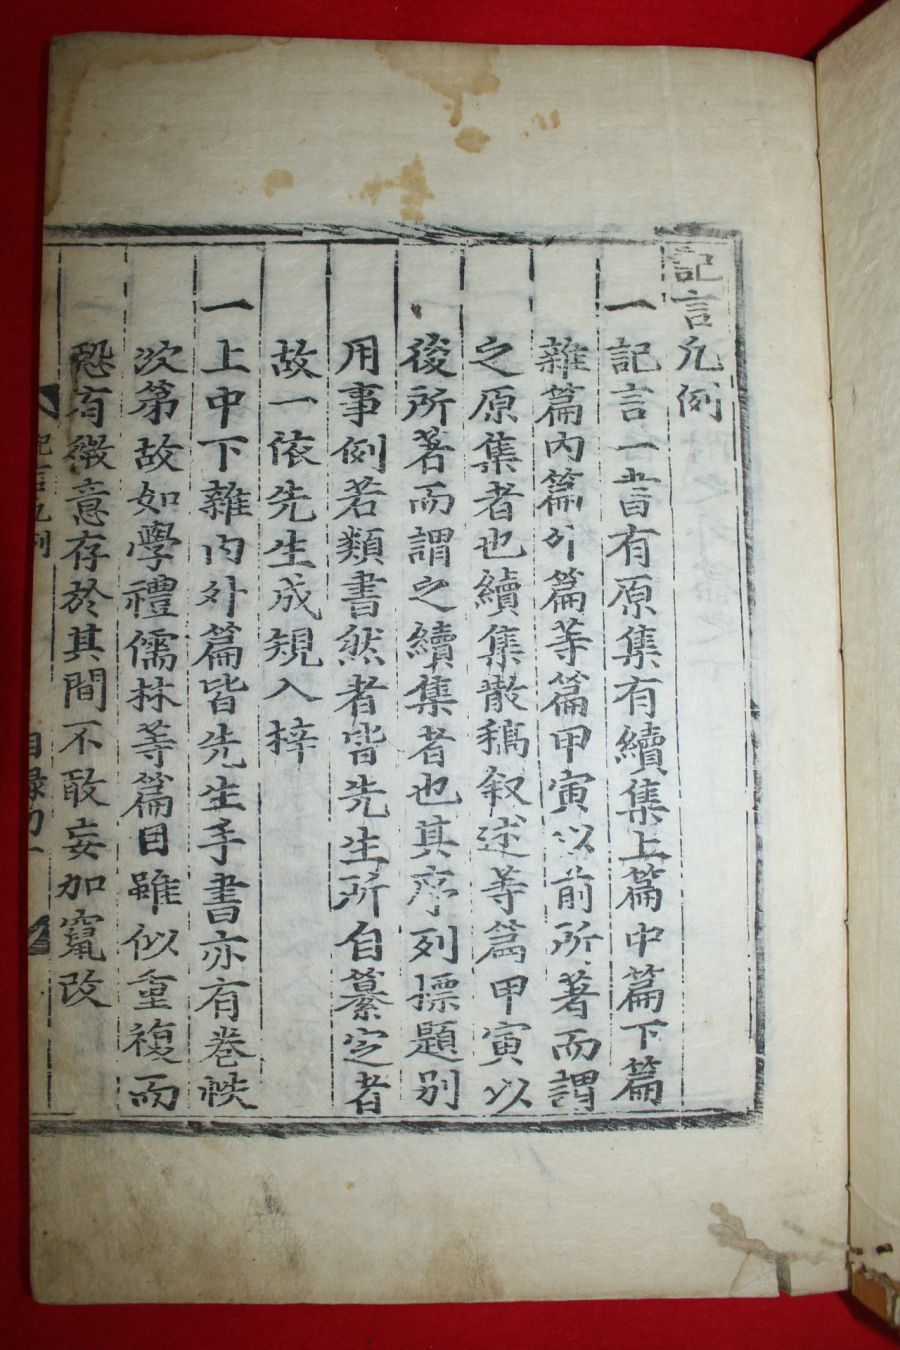 記言凡例
一記言一書有原集有續集上篇中篇下篇
雜篇內篇外篇等篇甲寅以前所著而謂
之原集者也續集散稿叙述等篇甲寅以
後所著而謂之續集者也其序列標題別
用事例若類書然者皆先生所自纂定者
故一依先生成規入梓
一上中下雜內外篇皆先生手書亦有卷帙
次第故如學禮儒林等篇目雖似重複而
恐有微意存於其間不敢妄加竄改
記言凡例 目錄